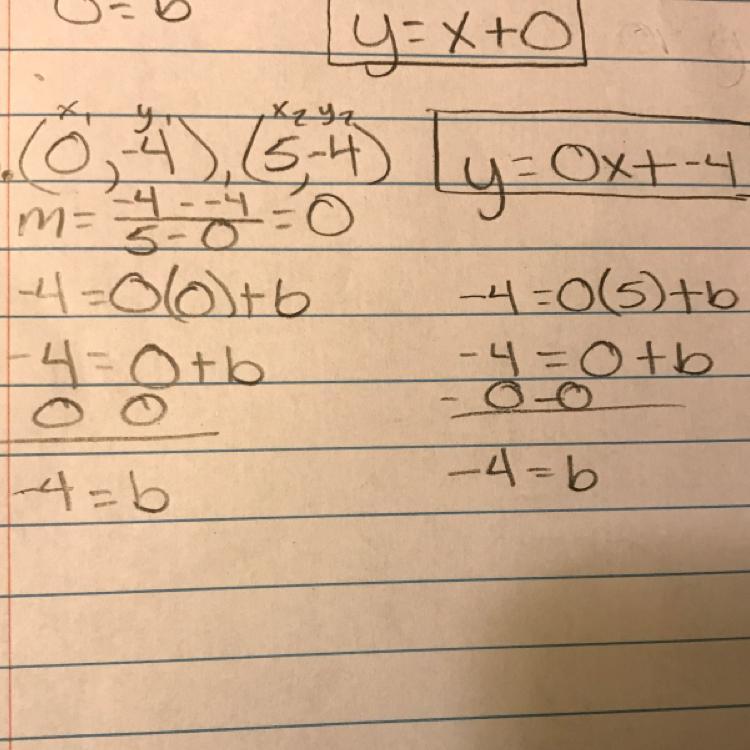 0 = b
y = x + 0
x₁ y₁ x₂ y₂
(0, -4), (5, -4)
y = 0x + -4
m = (-4 - -4)/(5 - 0) = 0
-4 = 0(0) + b
-4 = 0 + b
0 0
-4 = b
-4 = 0(5) + b
-4 = 0 + b
- 0 - 0
-4 = b